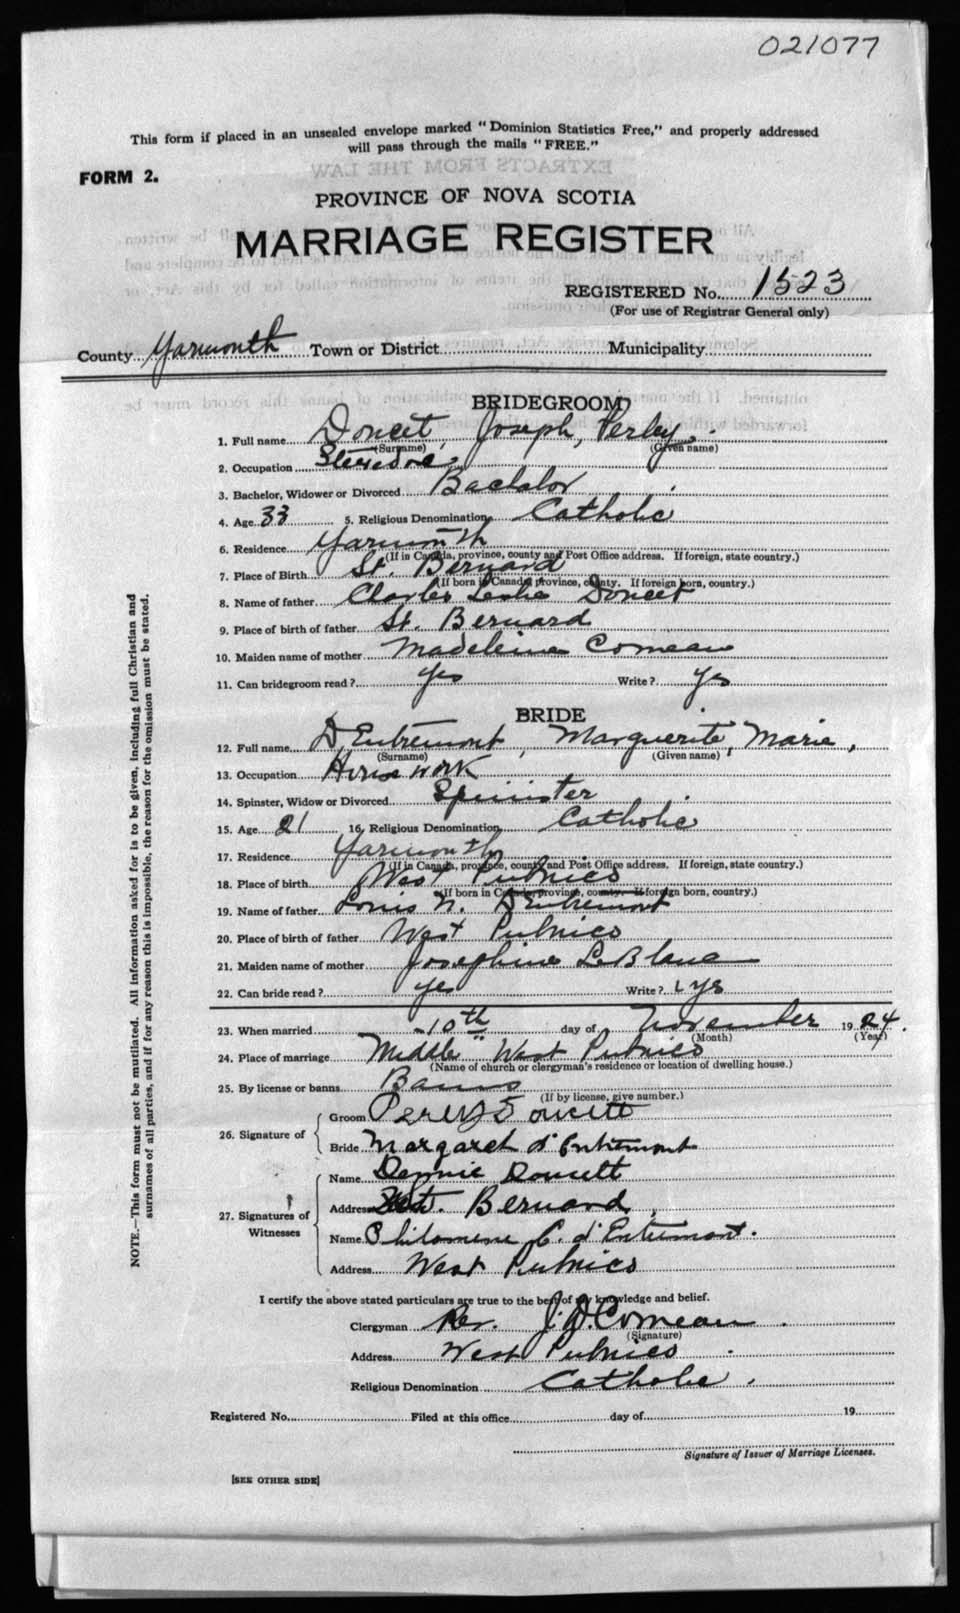 021077
This form if placed in an unsealed envelope marked "Dominion Statistics Free," and properly addressed
will pass through the mails "FREE."
FORM 2.
PROVINCE OF NOVA SCOTIA
MARRIAGE REGISTER
REGISTERED No. 1523
(For use of Registrar General only)
County Yarmouth Town or District Municipality
BRIDEGROOM
1. Full name Doucet, Joseph, Perley.
(Surname) (Given name)
2. Occupation Stevedore
3. Bachelor, Widower or Divorced Bachelor
4. Age 33 5. Religious Denomination Catholic
6. Residence Yarmouth
(If in Canada, province, county and Post Office address. If foreign, state country.)
7. Place of Birth St. Bernard
(If born in Canada, province, county. If foreign born, country.)
8. Name of father Charles Leslie Doucet
9. Place of birth of father St. Bernard
10. Maiden name of mother Madeleine Comeau
11. Can bridegroom read? Yes Write? Yes
BRIDE
12. Full name D'Entremont, Marguerite, Marie,
(Surname) (Given name)
13. Occupation House work
14. Spinster, Widow or Divorced Spinister
15. Age 21 16. Religious Denomination Catholic
17. Residence Yarmouth
(If in Canada, province, county and Post Office address. If foreign, state country.)
18. Place of birth West Pubnico
(If born in Canada, province, county. If foreign born, country.)
19. Name of father Louis N. D'Entremont
20. Place of birth of father West Pubnico
21. Maiden name of mother Josephine LeBlanc
22. Can bride read? Yes Write? Yes
23. When married 10th day of November 1924.
(Month) (Year)
24. Place of marriage Middle West Pubnico
(Name of church or clergyman's residence or location of dwelling house.)
25. By license or banns Banns
(If by license, give number.)
26. Signature of
Groom Percy Doucett
Bride Margaret d'Entremont
27. Signatures of Witnesses
Name Dennie Doucett
Address St. Bernard,
Name Philomene C. d'Entremont.
Address West Pubnico
I certify the above stated particulars are true to the best of my knowledge and belief.
Clergyman Rev. J. D. Comeau.
(Signature)
Address West Pubnico
Religious Denomination Catholic.
Registered No. Filed at this office day of 19
Signature of Issuer of Marriage Licenses.
[SEE OTHER SIDE]
NOTE.—This form must not be mutilated. All information asked for is to be given, including full Christian and
surnames of all parties, and if for any reason this is impossible, the reason for the omission must be stated.